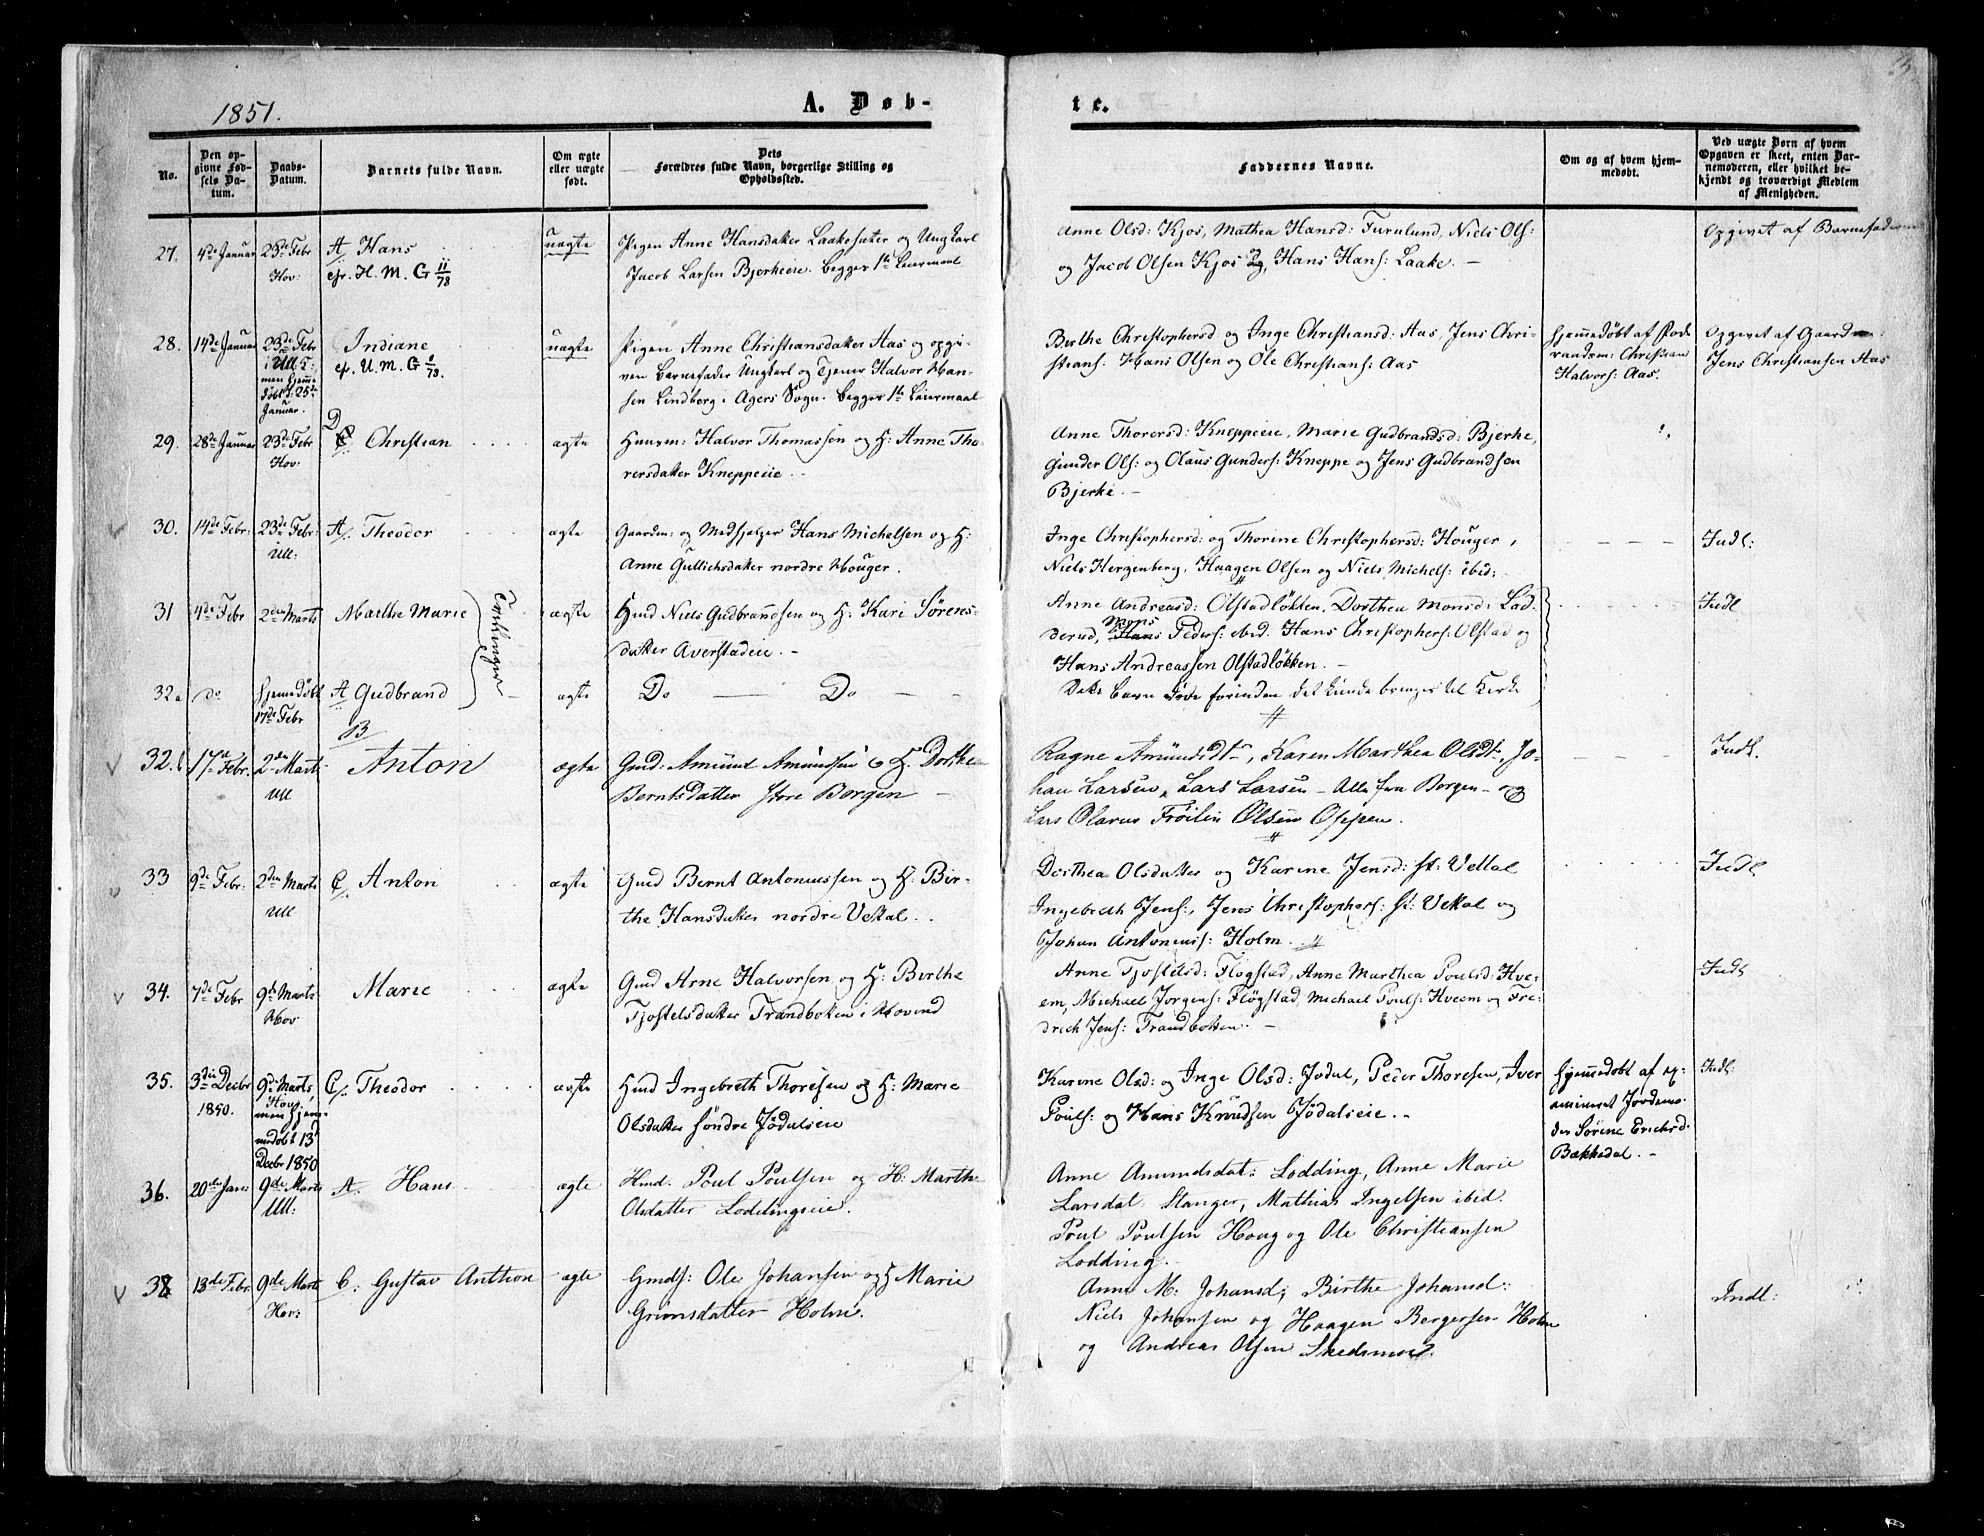 1851.
A. Døb-
te.
No.
Den op-
givne Fød-
sels Da-
tum.
Daabs-
Datum.
Barnets fulde Navn.
Om ægte
eller uægte
født.
Dets
Forældres fulde Navn, borgerlige Stilling og
Opholdssted.
Faddernes Navne.
Om og af hvem hjem-
medøbt.
Ved uægte Børn af hvem
Opgaven er skeet, enten Bar-
nemoderen, eller hvilket be-
kjendt og troværdigt Medlem
af Menigheden.
27. 4de Januar 23de Febr Hov. A/ Hans cfr. H. M. G 11/78 uægte
Pigen Anne Hansdatter Laakesæter og Ungkarl
Jacob Larsen Bjerkeeie. begges 1ste Leiermaal
Anne Olsd: Kjos, Mathea Hansd: Furulund, Niels Ols:
og Jacob Olsen Kjos og, Hans Hans: Laake. –
Opgivet af Barnefaderen
28. 14de Januar 23de Febr i Ull: men hjemmedøbt d: 25de Januar. Indiane cfr. U. M. G 1/79. uægte
Pigen Anne Christiansdatter Aas og opgi-
ven Barnefader Ungkarl og Tjener Halvor Han-
sen Lindberg i Agers Sogn. begges 1ste Leiermaal
Berthe Christophersd og Inge Christiansd: Aas, Jens Chri-
stians: Hans Olsen og Ole Christians: Aas
hjemmedøbt af
Christian
Halvors: Aas.
Opgivet af Gaardm:
Jens Christiansen Aas
29. 28de Januar 23de Febr Hov: D Christian ægte
Huusm: Halvor Thomassen og H: Anne Tho-
rersdatter Kneppeeie. –
Anne Thorersd: Kneppeeie, Marie Gudbrandsd: Bjerke,
Gunder Ols: og Olaus Gunders: Kneppe og Jens Gudbrandsen
Bjerke. –
30. 14de Febr: 23de Febr: Ull: A/ Theodor ægte
Gaardm: og Medhjelper Hans Michelsen og H:
Anne Gullichsdatter nordre Houger.
Inge Christophersd: og Thorine Christophersd: Houger,
Niels Herzenberg, Haagen Olsen og Niels Michels: ibid:
Indl:
31 4de Febr 2den Marts Marthe Marie Tvillinger ægte
Hmd Niels Gudbrandsen og H: Kari Sørens-
datter Averstadeie. –
Anne Andreasd: Olstadløkken, Dorthea Monsd: Lod-
derud, Hans Mons Peders: ibid. Hans Christophers: Olstad og
Hans Andreassen Olstadløkken. –
Indl
32a do hjemmedøbt 17de Febr A Gudbrand ægte
Do Do
Dette Barn døde forinden det kunde bringes til Kirke
32. 17de Febr. 2den Marts Ull B Anton ægte
Gmd: Amund Amundsen & H. Dorthea
Berntsdatter store Borgen –
Ragne Amundsdtr, Karen Marthea Olsdt, Jo-
han Larsen, Lars Larsen – Alle fra Borgen – og
Lars Olavus Frøilin Olsen Oppen.
Indl.
33 9de Febr: 2den Marts Ull C/ Anton ægte
Gmd Bernt Antoniussen og H: Bir-
the Hansdatter nordre Vettal.
Dorthea Olsdatter og Karine Jensd: st: Vettal
Ingebreth Jens:, Jens Christophers: st: Vettal og
Johan Antonius: Holm.
Indl
34. 7de Febr 9de Marts Hov Marie ægte
Gmd Arne Halvorsen og H: Birthe
Tjostelsdatter Trandbotten i Hovind
Anne Tjostelsd: Fløgstad, Anne Marthea Poulsd: Hve-
em, Michael Jørgens: Fløgstad, Michael Pouls: Hveem og Fre-
drich Jens: Trandbotten. –
Indl
35. 3die Decbr 1850. 9de Marts, Hov, men hjemmedøbt 13d Decbr 1850 C/. Theodor ægte
Hmd Ingebreth Thoresen og H: Marie
Olsdatter søndre Jødaleie
Karine Olsd: og Inge Olsd: Jødal, Peder Thoresen, Iver
Pouls: og Hans Knudsen Jødalseie. –
hjemmedøbt af ex-
amineret Jordemo-
der Sørine Erichsd.
Bakkedal. –
Indl
36. 20de Jan: 9de Marts Ull: A. Hans ægte
Hmd. Poul Poulsen og H: Marthe
Olsdatter Loddingseie.
Anne Amundsdat: Lodding, Anne Marie
Larsdat. Stanger, Mathias Ingelsen ibid.
Poul Poulsen Houg og Ole Christiansen
Lodding.
38 13de Febr. 9de Marts Hov: C: Gustav Anthon ægte
Gmds: Ole Johansen og H Marie
Grimsdatter Holm.
Anne M: Johansd; Birthe Johansd:
Niels Johansen og Haagen Bergersen Holm
og Andreas Olsen Skedsmoe.
Indl: